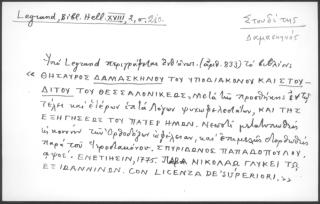 Legrand, Bibl. Hell. XVIII, 2, σ. 210.
Στουδίτης
Δαμασκηνός
Ὑπὸ Legrand περιγράφεται ὑπ' ἀριθ. 833 τὸ βιβλίον
« ΘΗΣΑΥΡΟΣ ΔΑΜΑΣΚΗΝΟΥ ΤΟΥ ΥΠΟΔΙΑΚΟΝΟΥ ΚΑΙ ΣΤΟΥ-
ΔΙΤΟΥ ΤΟΥ ΘΕΣΣΑΛΟΝΙΚΕΩΣ, μετὰ τῆς προσθήκης ἐν τῷ
τέλει καὶ ἑτέρων ἑπτὰ λόγων ψυχωφελεστάτων, ΚΑΙ ΤΗΣ
ΕΞΗΓΗΣΕΩΣ ΤΟΥ ΠΑΤΕΡ ΗΜΩΝ. Νεωστὶ μετατυπωθεὶς
εἰς κοινὴν τῶν Ὀρθοδόξων ὠφέλειαν, καὶ ἐπιμελῶς διορθωθεὶς
παρὰ τοῦ ΣΠΥΡΙΔΩΝΟΣ ΠΑΠΑΔΟΠΟΥΛΟΥ.
ΕΝΕΤΙΗΣΙΝ, 1775. ΠΑΡΑ ΝΙΚΟΛΑΩ ΓΛΥΚΕΙ ΤΩ
ΕΞ ΙΩΑΝΝΙΝΩΝ. CON LICENZA DE' SUPERIORI. »